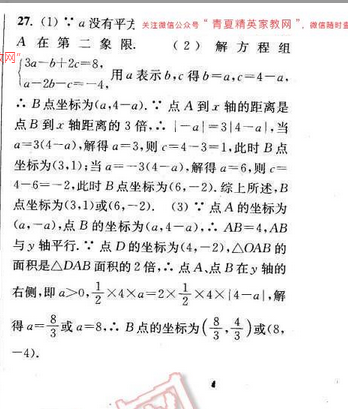 27. (1)∵a没有平方 关注微信公众号"青夏精英家教网", 微信随时查
A 在第二象限. (2)解方程组
{3a-b+2c=8,
a-2b-c=-4,
用a表示b,c得b=a,c=4-a,
∴B点坐标为(a,4-a).∵点A到x轴的距离是
点B到x轴距离的3倍,∴|-a|=3|4-a|,当
a=3(4-a),解得a=3,则c=4-3=1,此时B点
坐标为(3,1);当a=-3(4-a),解得a=6,则c=
4-6=-2,此时B点坐标为(6,-2).综上所述,B
点坐标为(3,1)或(6,-2). (3)∵点A的坐标为
(a,-a),点B的坐标为(a,4-a),∴AB=4,AB
与y轴平行.∵点D的坐标为(4,-2),△OAB的
面积是△DAB面积的2倍,∴点A、点B在y轴的
右侧,即a>0,1/2×4×a=2×1/2×4×|4-a|,解
得a=8/3或a=8,∴B点的坐标为(8/3,4/3)或(8,
-4).